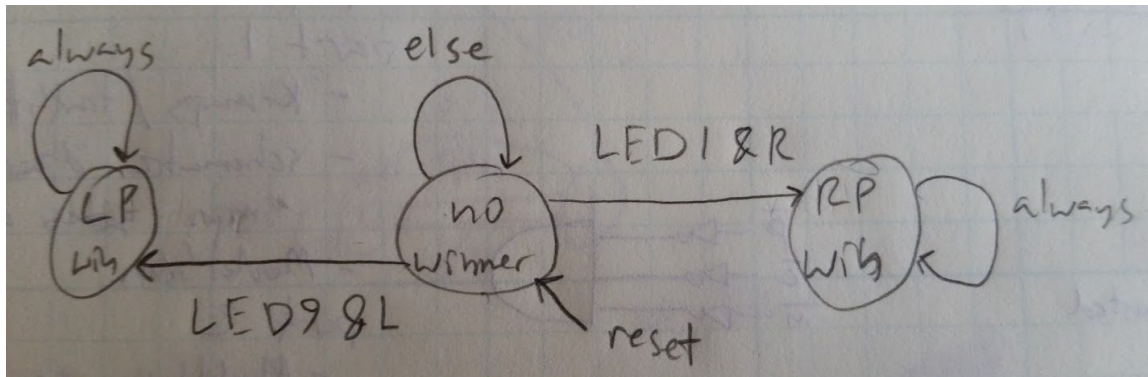 always
else
LED1 & R
LP
win
no
winner
RP
win
always
LED9 & L
reset